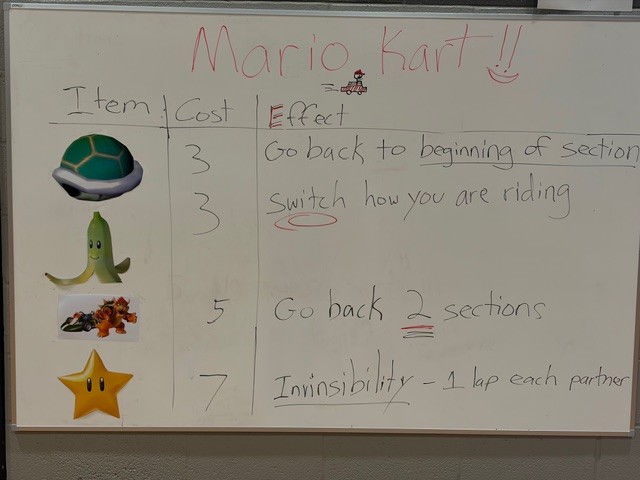 Mario Kart!!
Item Cost Effect
3 Go back to beginning of section
3 Switch how you are riding
5 Go back 2 sections
7 Invinsibility - 1 lap each partner